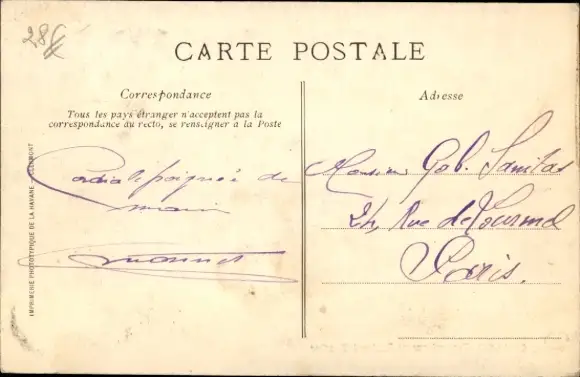 28
CARTE POSTALE
Correspondance
Tous les pays étranger n'acceptent pas la
correspondance du recto, se renseigner à la Poste
Cordiale poignée de
main
Adresse
Monsieur Gob.
24, Rue de
Paris.
IMPRIMERIE PHOTOTYPIQUE DE LA HAVANE